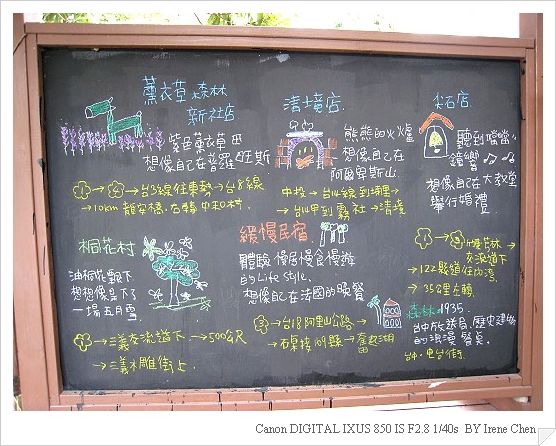 薰衣草森林
新社店
紫色薰衣草田
想像自己在普羅旺斯
台3線往東勢→台8線
→10km 龍安橋,右轉 中和村
清境店
熊熊的火爐
想像自己在
阿爾卑斯山
中投→台14線到埔里→
台14甲到霧社→清境
尖石店
聽到噹噹
鐘響
想像自己在大教堂
舉行婚禮
竹林
交流道下
→122縣道往內灣
→35公里左轉
桐花村
油桐花飄下
想想像下了
一場五月雪
→三義交流道下→500公尺
→三義木雕街上
緩慢民宿
體驗 慢居慢食慢遊
的 Life Style.
想像自己在法國的晚餐
→台18阿里山公路→
石桌接169縣→奮起湖
森林1935
台中放送局,歷史建物
的浪漫餐桌
台中.電台街
Canon DIGITAL IXUS 850 IS F2.8 1/40s BY Irene Chen